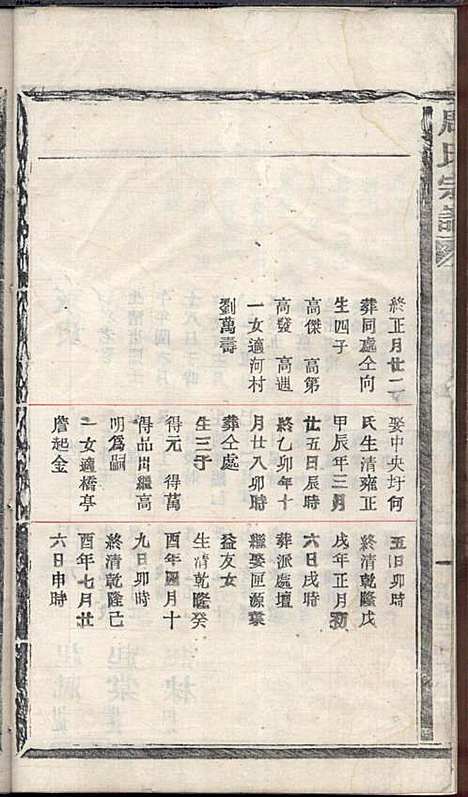 周氏宗譜
終正月廿二
葬同處仝向
生四子
高傑 高第
高發 高週
一女適河村
劉萬壽
娶中央圩何
氏生清雍正
甲辰年三月
廿五日辰時
終乙卯年十
月廿八卯時
葬仝處
生三子
得元 得萬
得品出繼高
明為嗣
一女適橋亭
詹起金
五日卯時
終清乾隆戊
戌年正月初
六日戌時
葬派處壇
繼娶匣源葉
益友女
生清乾隆癸
酉年四月十
九日卯時
終清乾隆己
酉年七月廿
六日申時